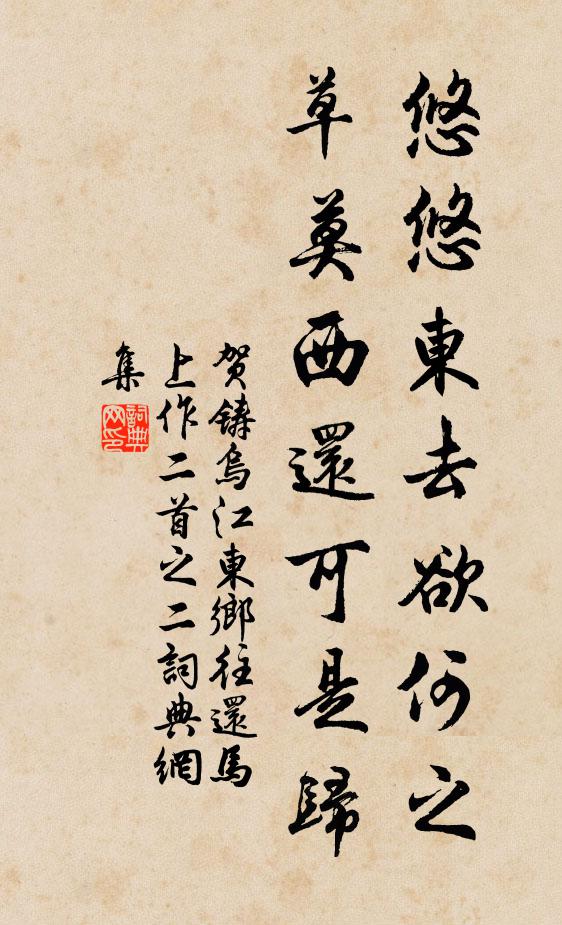 悠悠東去欲何之
草莫西還可是歸
贺鑄烏江東鄉往還馬
上作二首之二詞典網
集
詞典
网印